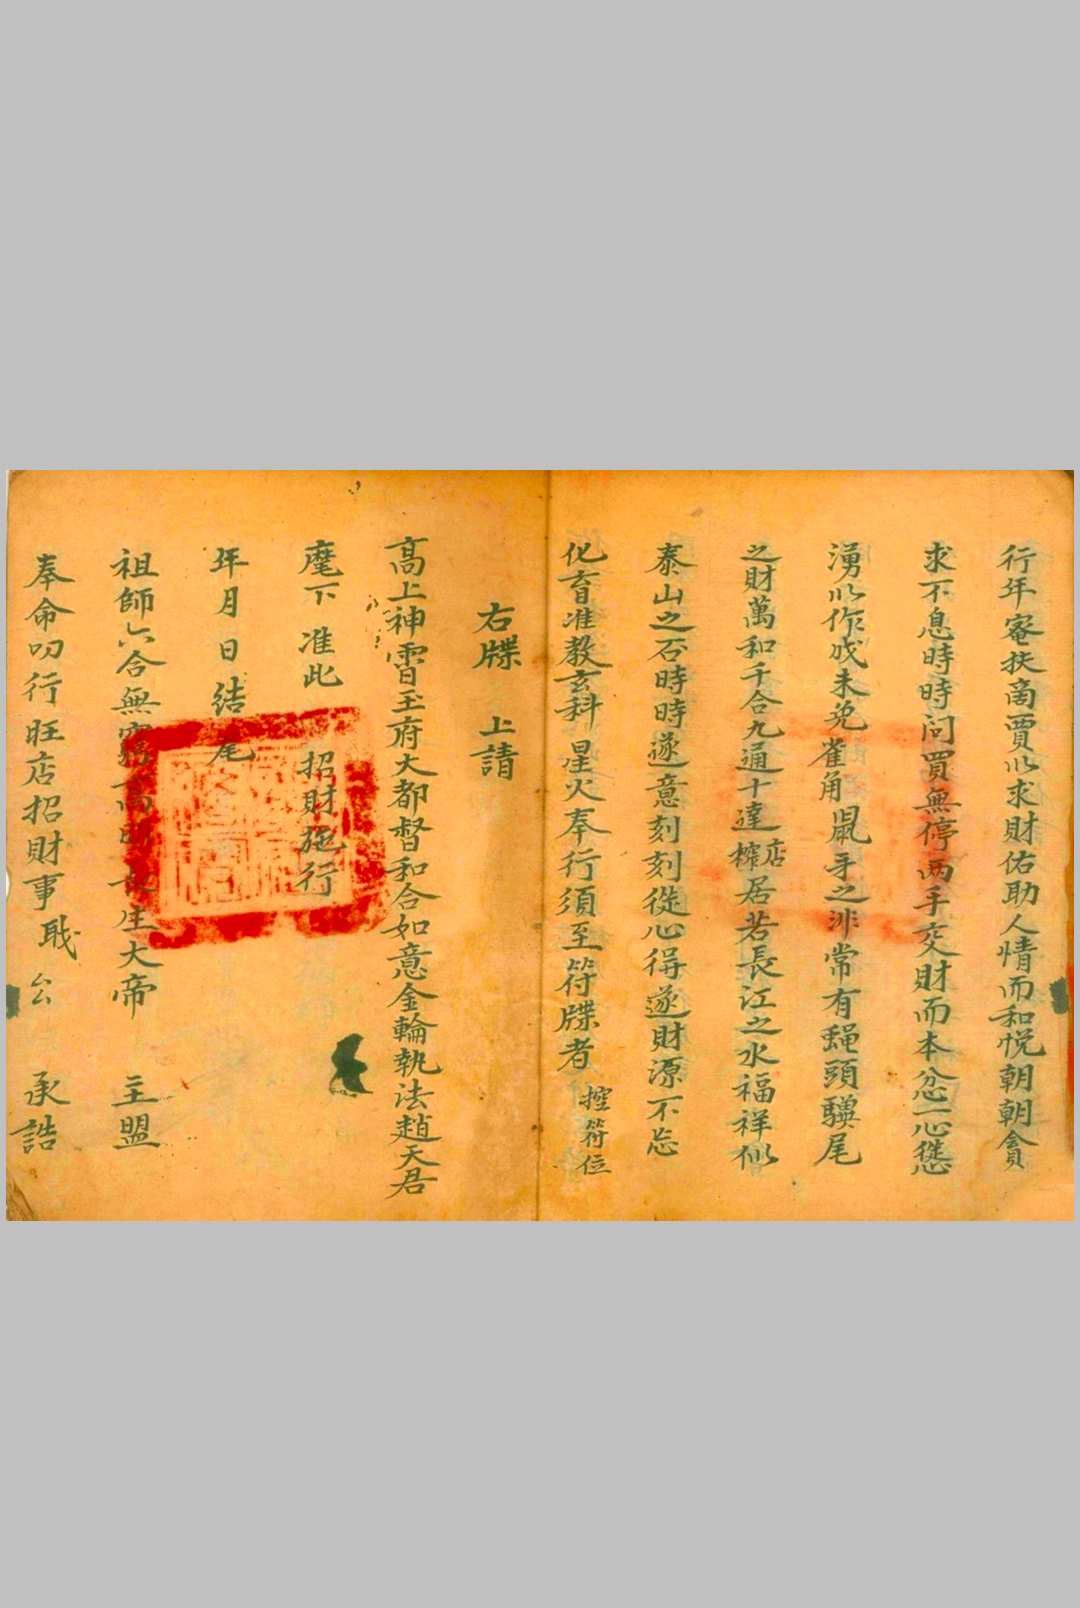 行年密扶啇賈以求財佑助人情而和悅朝朝貪
求不息時時问買無停两手交財而本忿一心慫
湧以作成未免雀角鼠牙之非常有蝇頭驥尾
之財萬和千合九通十達店榨居若長江之水福祥似
泰山之石時時遂意刻刻從心得遂財源不忘
化育准教玄科星火奉行須至符牒者 控符位
右牒 上請
高上神霄玉府大都督和合如意金輪執法趙天君
麾下准此 招財施行
年月日結尾
祖師六合無窮高明大生大帝 主盟
奉命叨行旺店招財事職厶 承誥